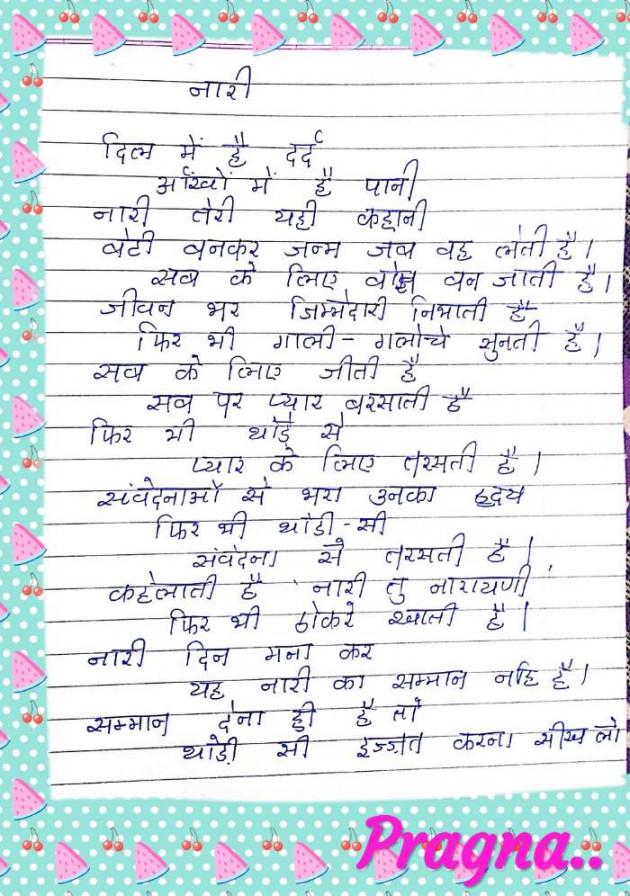 नारी
दिल में है दर्द
आँखों में है पानी
नारी तेरी यही कहानी
बेटी बनकर जन्म जब वह लेती है।
सब के लिए बोझ बन जाती है।
जीवन भर जिम्मेदारी निभाती है
फिर भी गाली-गलोचे सुनती है।
सब के लिए जीती है
सब पर प्यार बरसाती है
फिर भी थोड़े से
प्यार के लिए तरसती है।
संवेदनाओं से भरा उनका ह्रदय
फिर भी थोडी-सी
संवेदना से तरसती है।
कहेलाती है नारी तु नारायणी
फिर भी ठोकरे खाती है।
नारी दिन मना कर
यह नारी का सम्मान नहि है।
सम्मान देना ही है तो
थोडी सी इज्जत करना सीख लो
Pragna..